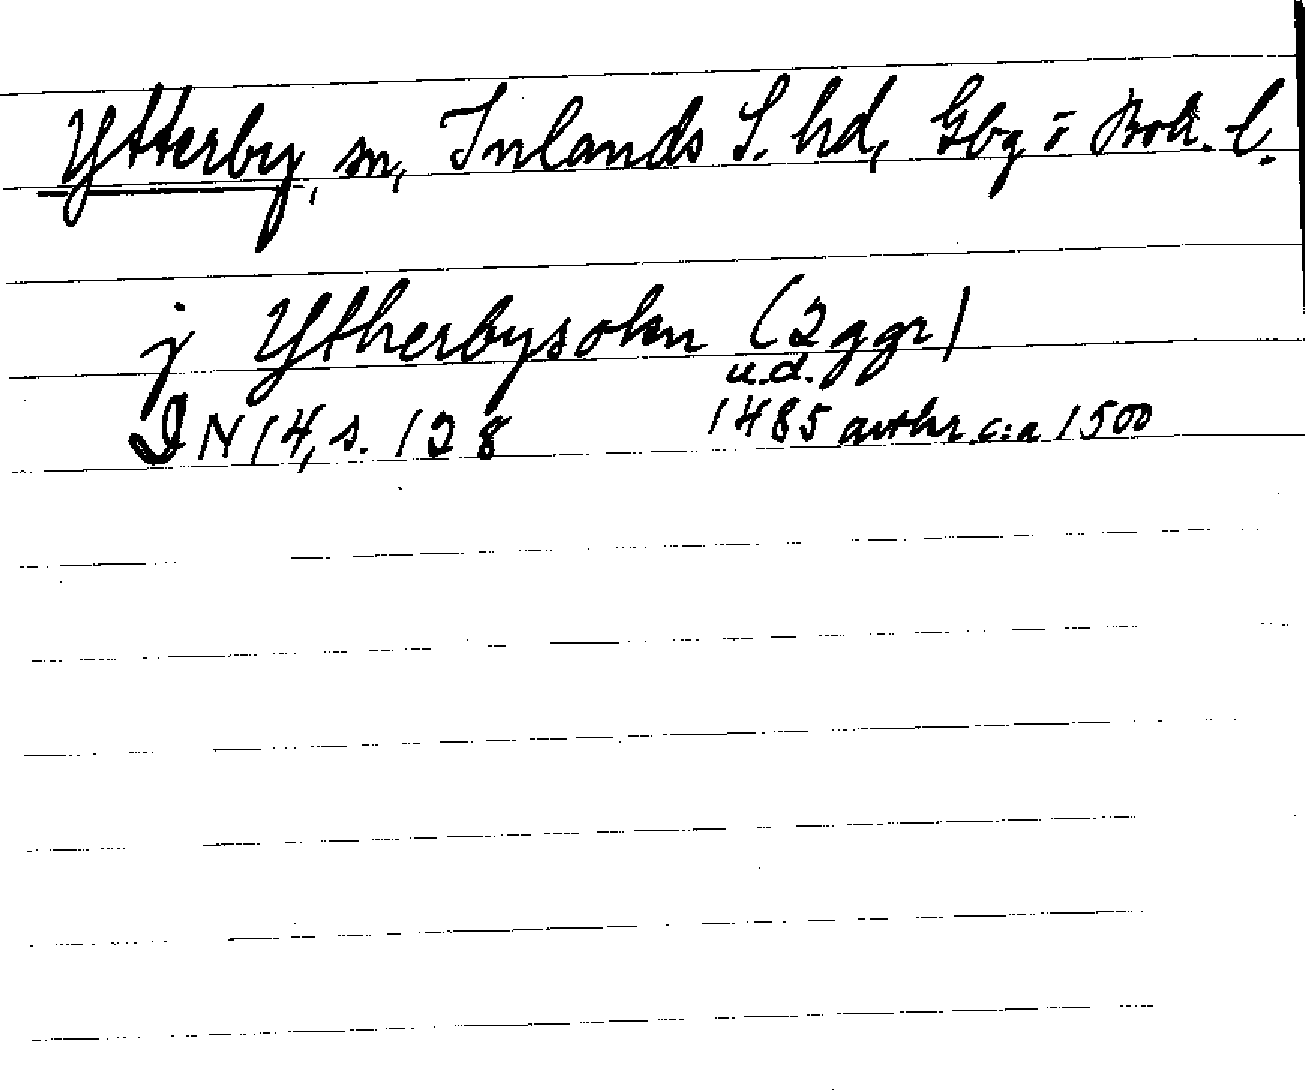 Ytterby, sn, Inlands S. hd, Gbg o Boh. l.
j Ytherbysokn (2 ggr)
u.d.
DN 14, s. 128 1485 avskr c:a 1500